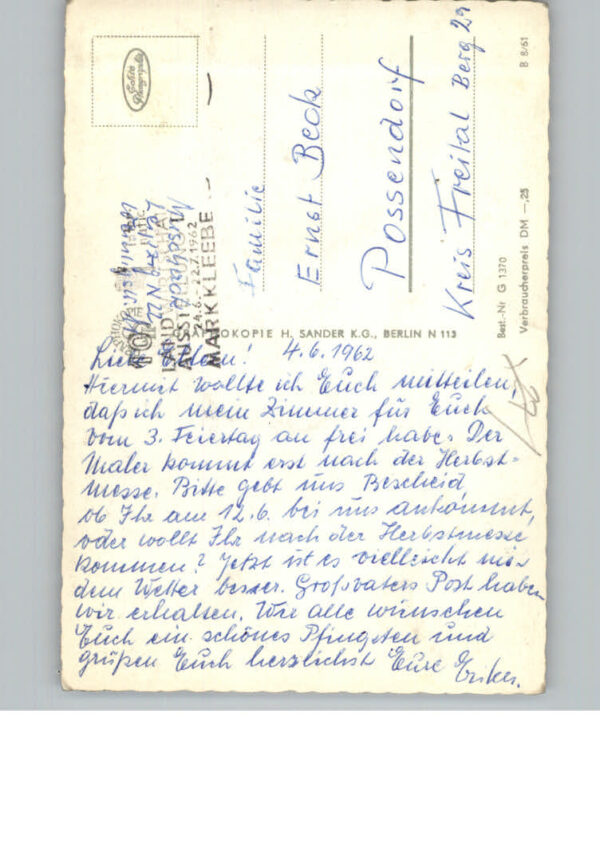 Echte
Photographie
10.
LANDWIRTSCHAFTS
AUSSTELLUNG
24.6. - 2.7.1962
MARKKLEEBE
Familie
Ernst Beck
Possendorf
Kreis Freital Berg 29
Best.-Nr G 1370
Verbraucherpreis DM –,25
B 8/61
OKOPIE H. SANDER K.G., BERLIN N 113
4.6.1962
Hiermit wollte ich Euch mitteilen,
daß ich mein Zimmer für Euch
vom 3. Feiertag an frei habe. Der
Maler kommt erst nach der Herbst-
messe. Bitte gebt uns Bescheid
ob Ihr am 12.6. bei uns ankommt,
oder wollt Ihr nach der Herbstmesse
kommen? Jetzt ist es vielleicht mit
dem Wetter besser. Großvaters Post haben
wir erhalten. Wir alle wünschen
Euch ein schönes Pfingsten und
grüßen Euch herzlichst Eure